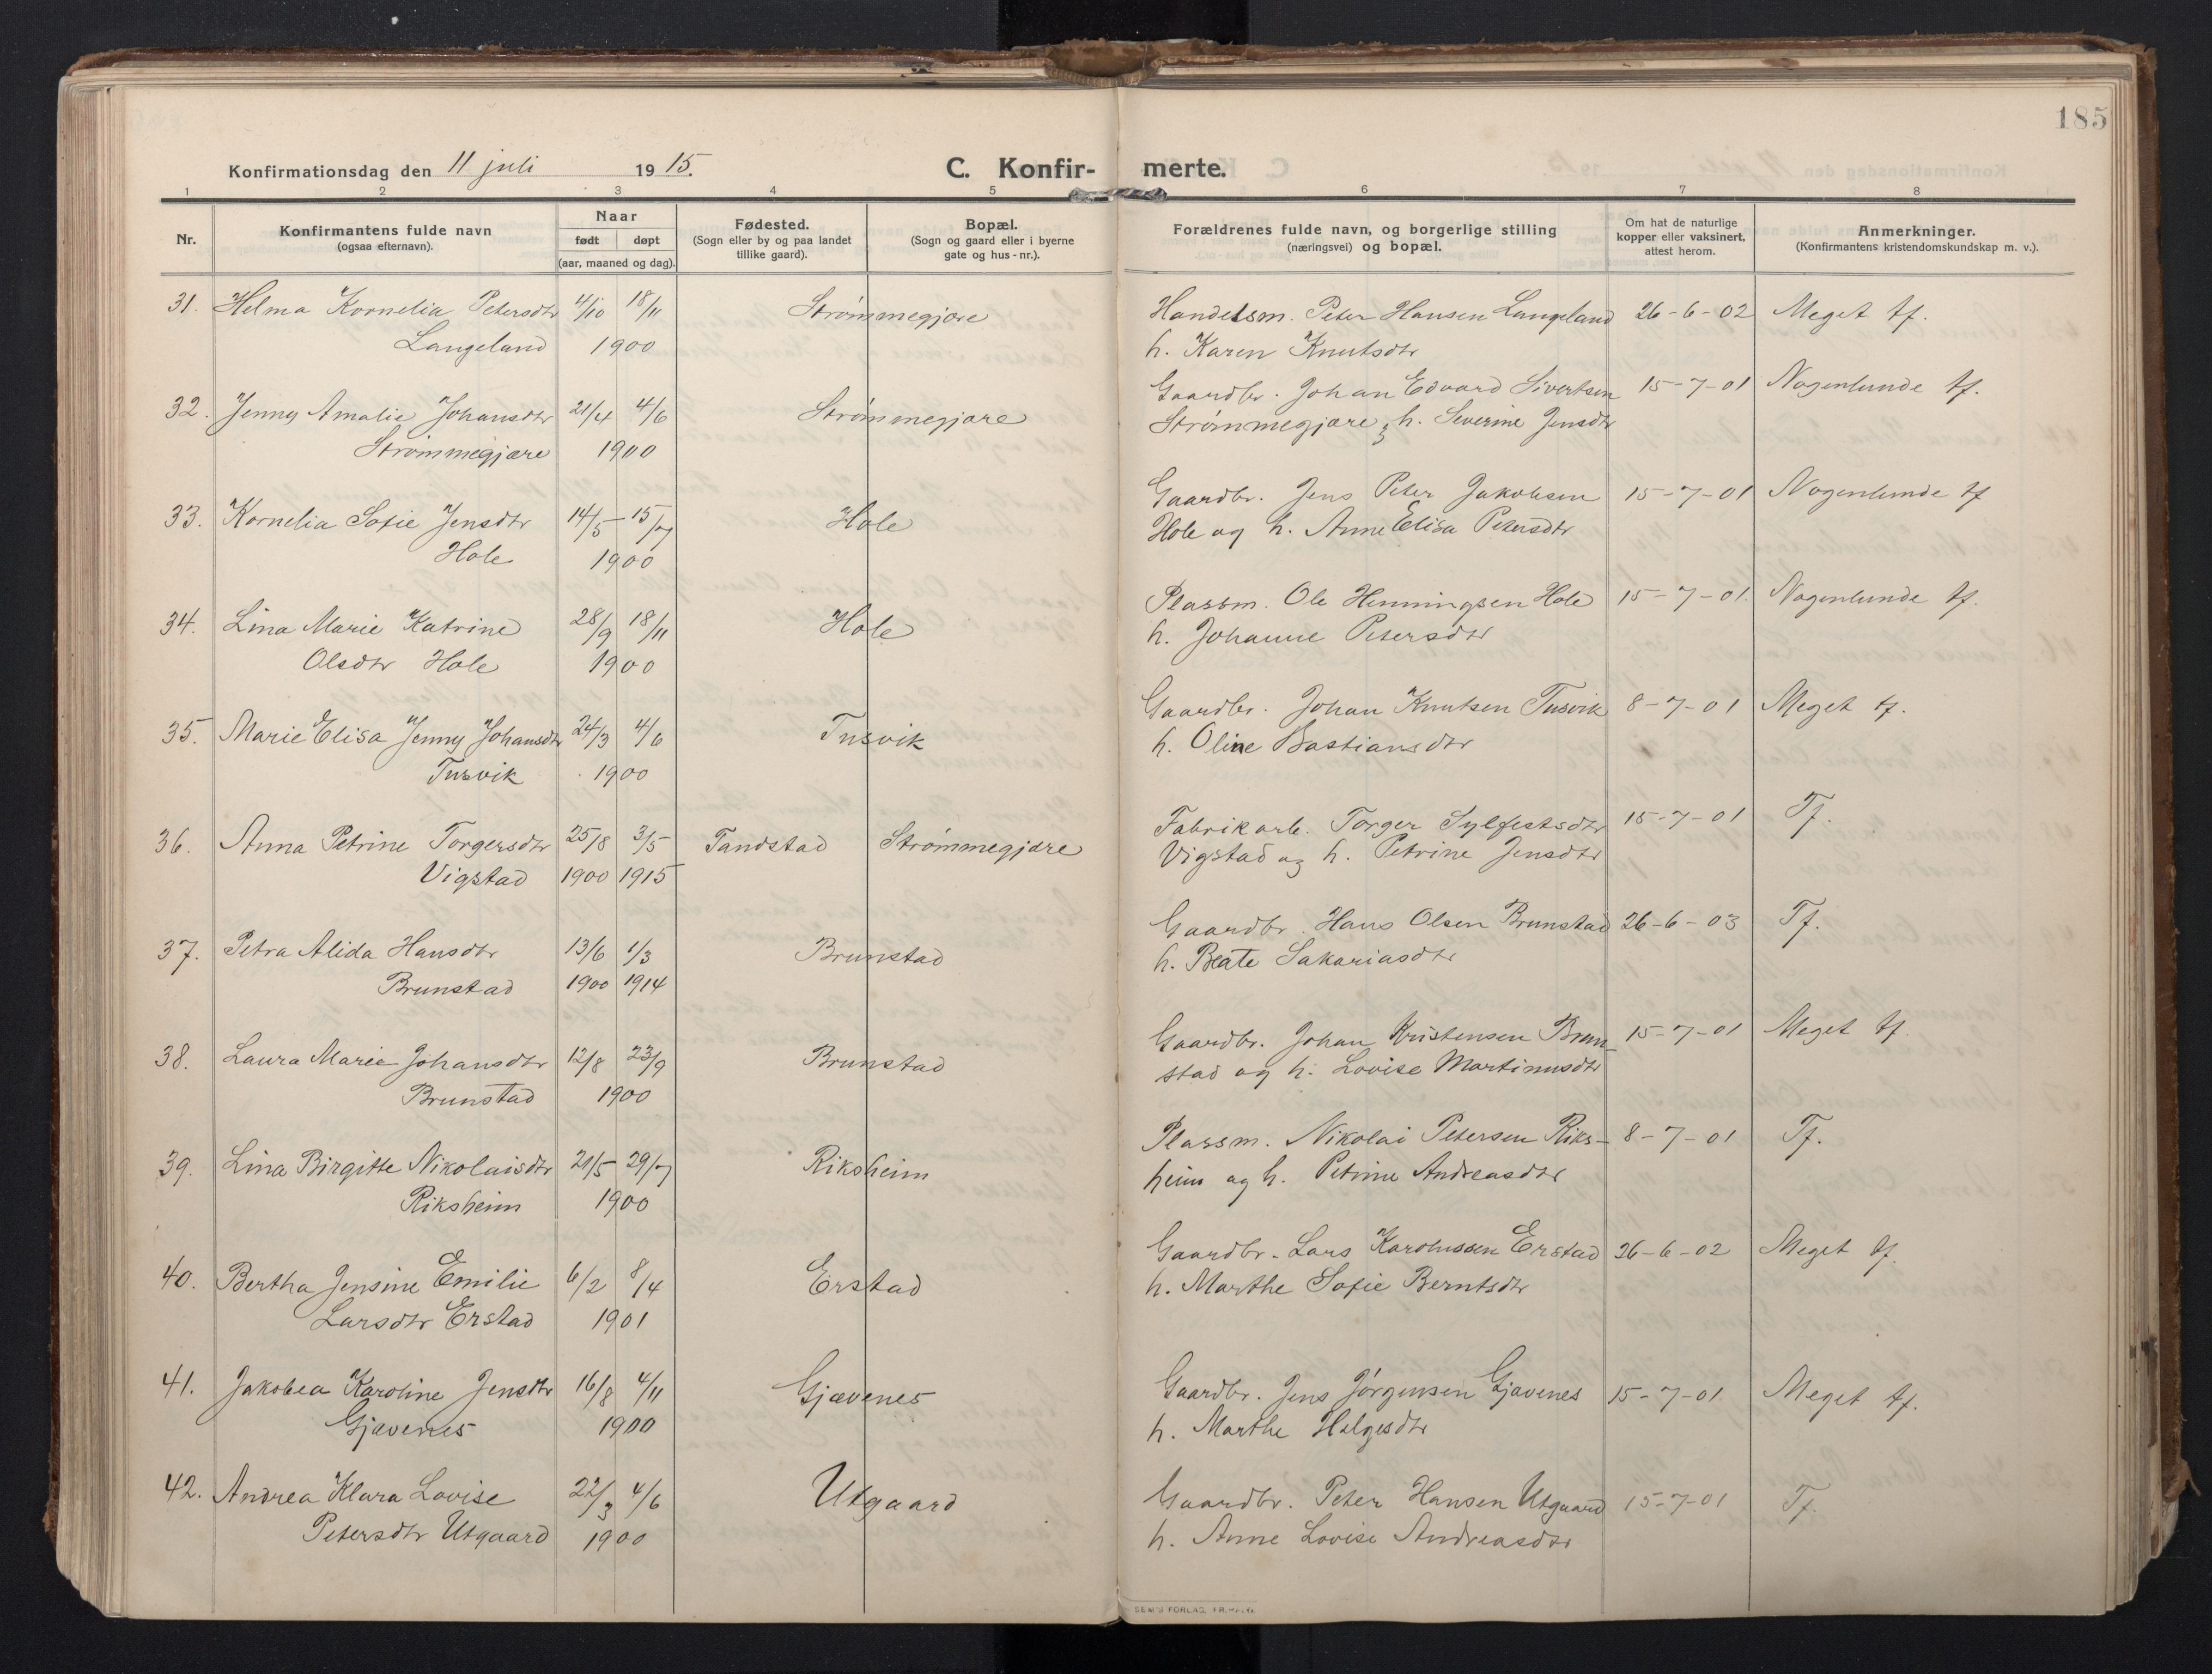 185
Konfirmationsdag den 11 juli 1915.
C. Konfir- merte.
1 2 3 4 5 6 7 8
Nr.
Konfirmantens fulde navn
(ogsaa efternavn).
Naar
født døpt
(aar, maaned og dag).
Fødested.
(Sogn eller by og paa landet
tillike gaard).
Bopæl.
(Sogn og gaard eller i byerne
gate og hus-nr.).
Forældrenes fulde navn, og borgerlige stilling
(næringsvei) og bopæl.
Om hat de naturlige
kopper eller vaksinert,
attest herom.
Anmerkninger.
(Konfirmantens kristendomskundskap m. v.).
31. Helma Kornelia Petersdtr 4/10 18/11 Strømmegjære Handelsm. Peter Hansen Langeland 26-6-02 Meget tf.
Langeland 1900 h. Karen Knutsdtr
32. Jenny Amalie Johansdtr 21/4 4/6 Strømmegjære Gaardbr. Johan Edvard Sivertsen 15-7-01 Nogenlunde tf.
Strømmegjære 1900 Strømmegjære, h. Severine Jensdtr
33. Kornelia Sofie Jensdtr 14/5 15/7 Hole Gaardbr. Jens Peter Jakobsen 15-7-01 Nogenlunde tf
Hole 1900 Hole og h. Anne Elisa Petersdtr
34. Lina Marie Katrine 28/9 18/11 Hole Plassm. Ole Henningsen Hole 15-7-01. Nogenlunde tf.
Olsdtr Hole 1900 h. Johanne Petersdtr
35. Marie Elisa Jenny Johansdtr 24/3 4/6 Tusvik Gaardbr. Johan Knutsen Tusvik 8-7-01 Meget tf.
Tusvik 1900 h. Oline Bastiansdtr
36. Anna Petrine Torgersdtr 25/8 3/5 Tandstad Strømmegjære Fabrikarb. Torger Sylfestsdtr 15-7-01 Tf.
Vigstad 1900 1915 Vigstad og h. Petrine Jensdtr
37. Petra Alida Hansdtr 13/6 1/3 Brunstad Gaardbr. Hans Olsen Brunstad 26-6-03 Tf.
Brunstad 1900 1914 h. Beate Sakariasdtr
38. Laura Marie Johansdtr 12/8 23/9 Brunstad Gaardbr. Johan Kristensen Brun- 15-7-01 Meget tf.
Brunstad 1900 stad og h. Lovise Martinusdtr
39. Lina Birgitte Nikolaisdtr 21/5 29/7 Riksheim Plassm. Nikolai Petersen Riks- 8-7-01 Tf.
Riksheim 1900 heim og h. Petrine Andreasdtr
40. Bertha Jensine Emilie 6/2 8/4 Erstad Gaardbr. Lars Karolussen Erstad 26-6-02 Meget tf.
Larsdtr Erstad 1901 h. Marthe Sofie Berntsdtr
41. Jakobea Karoline Jensdtr 16/8 4/11 Gjævenes Gaardbr. Jens Jørgensen Gjævenes 15-7-01 Meget tf.
Gjævenes 1900 h. Marthe Helgesdtr
42. Andrea Klara Lovise 22/3 4/6 Utgaard Gaardbr. Peter Hansen Utgaard 15-7-01 Tf.
Petersdtr Utgaard 1900 h. Anne Lovise Andreasdtr
SEM'S FORLAG, FR.HALD.